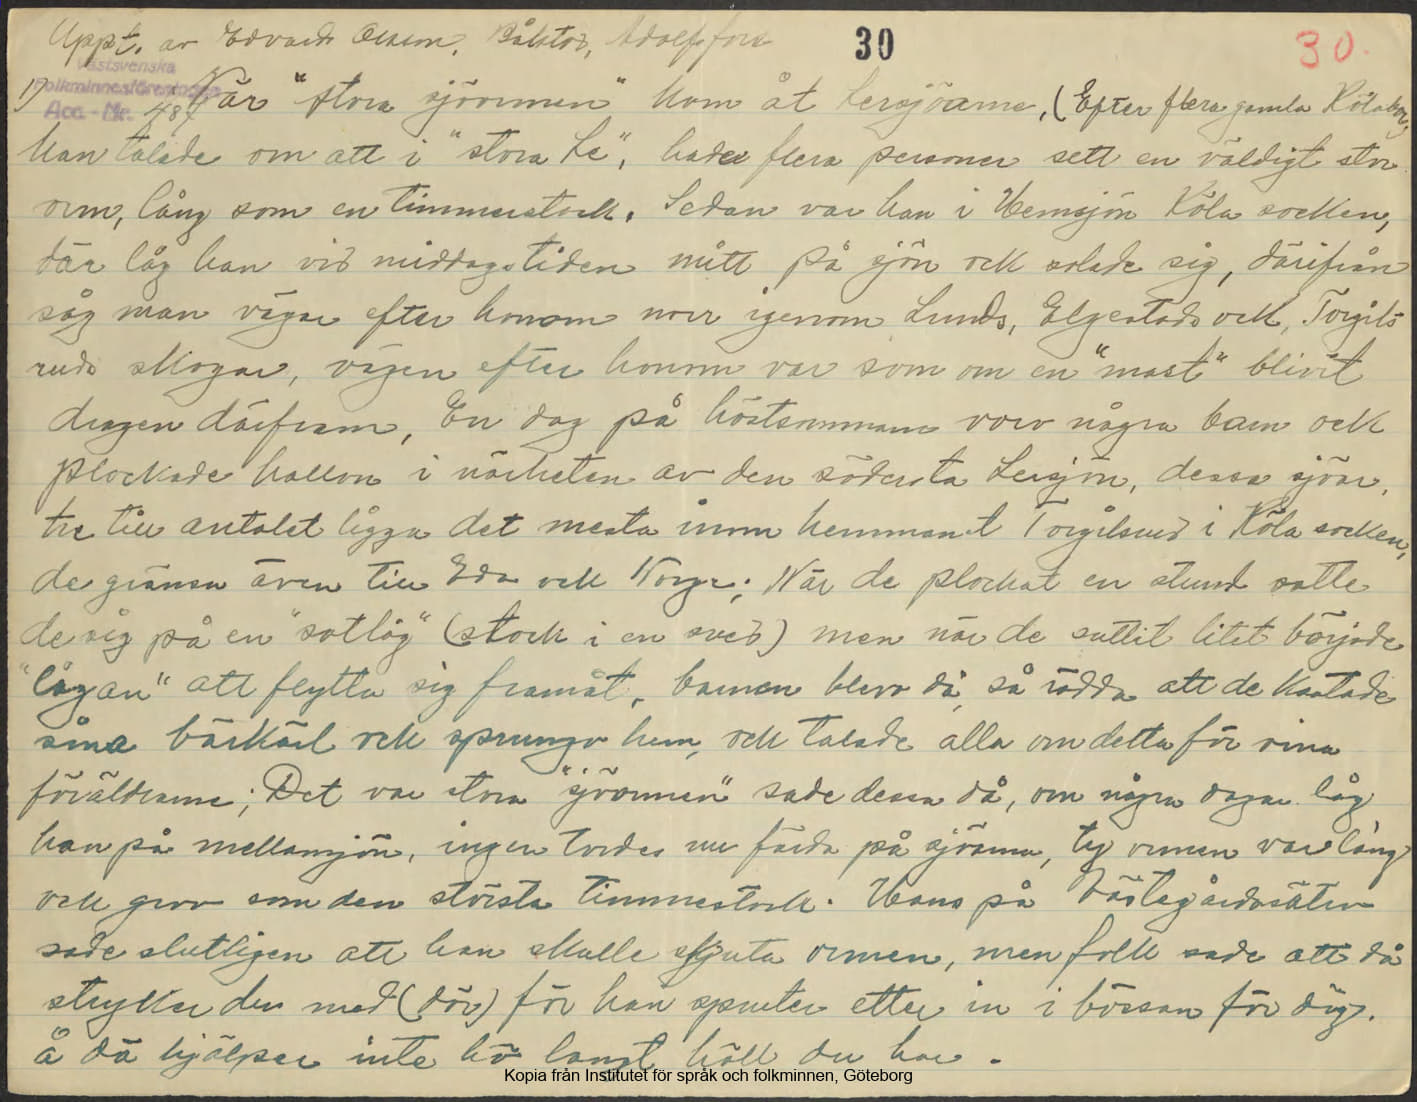 Uppt. av Edvard Olsson, Bålstad, Adolfsfors
30
30.
Västsvenska
Folkminnesföreningen
Acc.-Nr. 487
När "stora sjöormen" kom åt Lersjöarne, (Efter flera gamla Kölabor,
han talade om att i "stora Le", hade flera personer sett en väldigt stor
orm, lång som en timmerstock. Sedan var han i Hemsjön Köla socken,
där låg han vid middagstiden mitt på sjön ock solade sig, därifrån
såg man vägar efter honom norr igenom Lunds, Elgestads ock, Torgils
ruds skogar, vägen efter honom var som om en "mast" blivit
dragen därfram, En dag på höstsommarn vorv några barn ock
plockade hallon i närheten av den södersta Lersjön, dessa sjöar,
tre till antalet ligga det mesta inom hemmanet Torgilsrud i Köla socken,
de gränsa även till Eda ock Norge; När de plockat en stund satte
de sig på en "sotlåg" (stock i en sved) men när de suttit litet började
"lågan" att flytta sig framåt, barnen blevo då, så rädda att de kastade
sina bärkärl ock sprungo hem, ock talade alla om detta för sina
föräldrarne; Det var stora "sjöormen" sade dessa då, om några dagar låg
han på mellansjön, ingen tordes nu färda på sjöarna, ty ormen var lång
ock grov som den största timmerstock. Hans på Västegårdssätern
sade slutligen att han skulle skjuta ormen, men folk sade att då
stryker du med (dör) för han sprutar etter in i bössan för dig.
å då hjälper inte hö langt håll du har.
Kopia från Institutet för språk och folkminnen, Göteborg